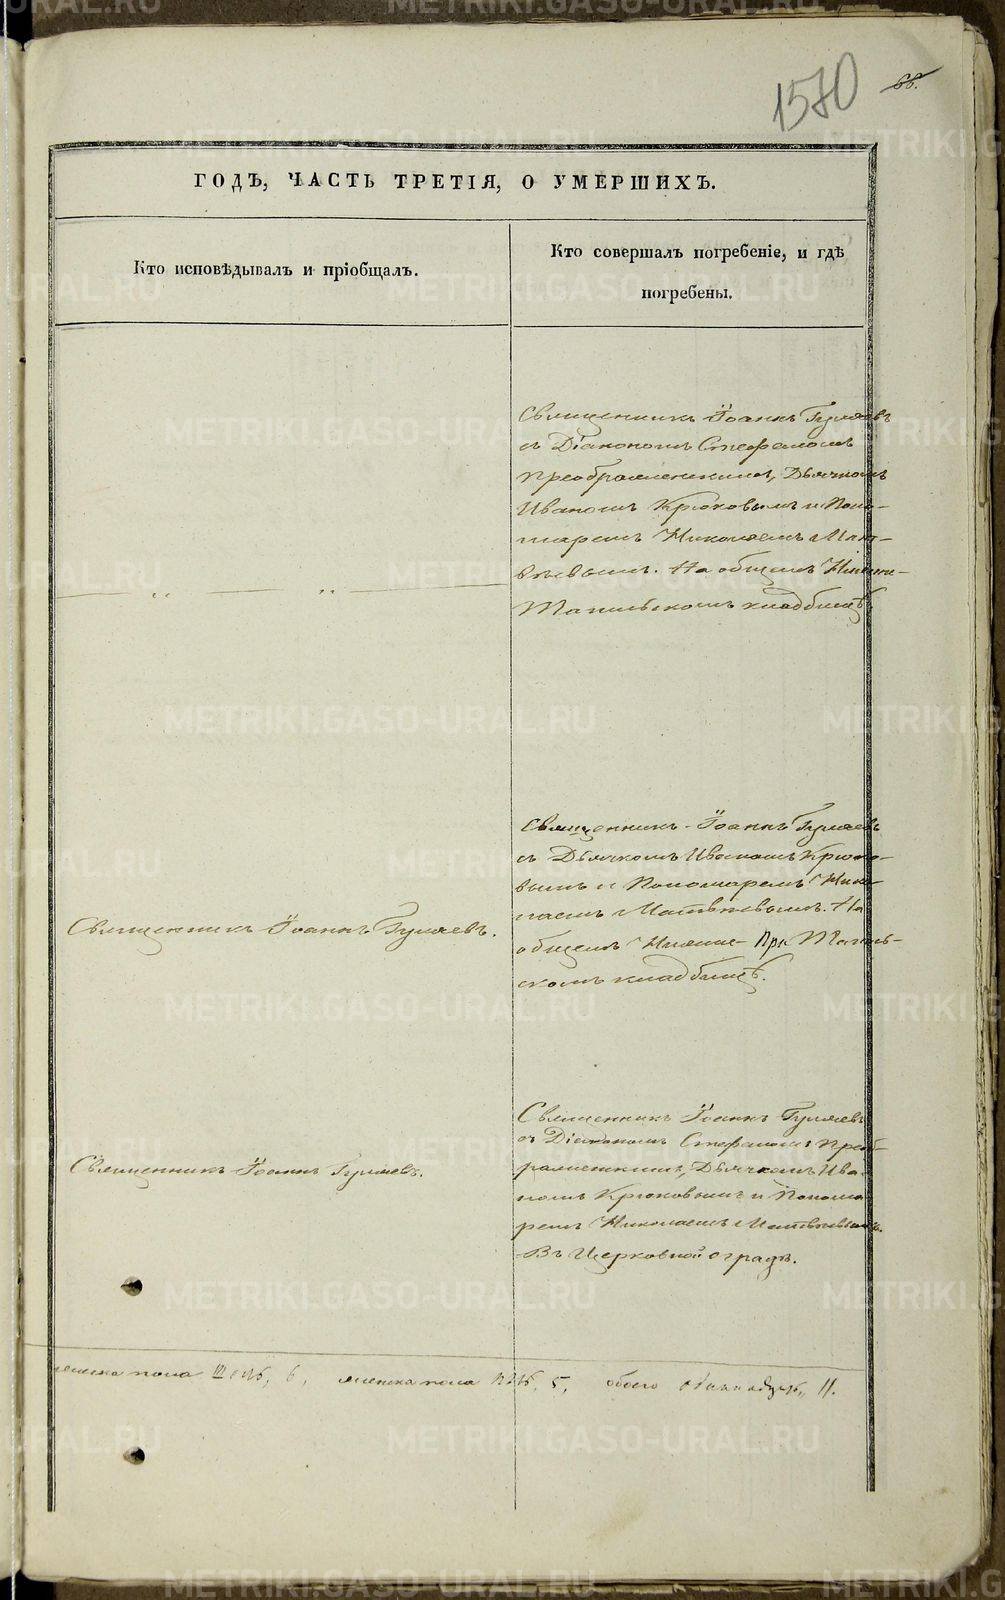 1570
66.
ГОДЪ, ЧАСТЬ ТРЕТІЯ, О УМЕРШИХЪ.
Кто исповѣдывалъ и пріобщалъ.
Кто совершалъ погребеніе, и гдѣ
погребены.
Священникъ Іоаннъ Гуляевъ
съ Діакономъ Стефаномъ
Преображенскимъ, Дьячкомъ
Иваномъ Крюковымъ и Поно-
маремъ Николаемъ Мат-
вѣевымъ. На общемъ Нижне-
Тагильскомъ кладбищѣ
Священникъ Іоаннъ Гуляевъ.
Священникъ Іоаннъ Гуляевъ
съ Дьячкомъ Иваномъ Крюко-
вымъ и Пономаремъ Нико-
лаемъ Матвѣевымъ. На
общемъ Нижне- Тагиль-
скомъ кладбищѣ.
Священникъ Іоаннъ Гуляевъ.
Священникъ Іоаннъ Гуляевъ
съ Діакономъ Стефаномъ Преоб-
раженскимъ, Дьячкомъ Ива-
номъ Крюковымъ и Понома
ремъ Николаемъ Матвѣевымъ.
Въ Церковной оградѣ.
мужеска пола шесть, 6, женска пола пять, 5, обоего одиннадцать, 11.
METRIKI.GASO-URAL.RU